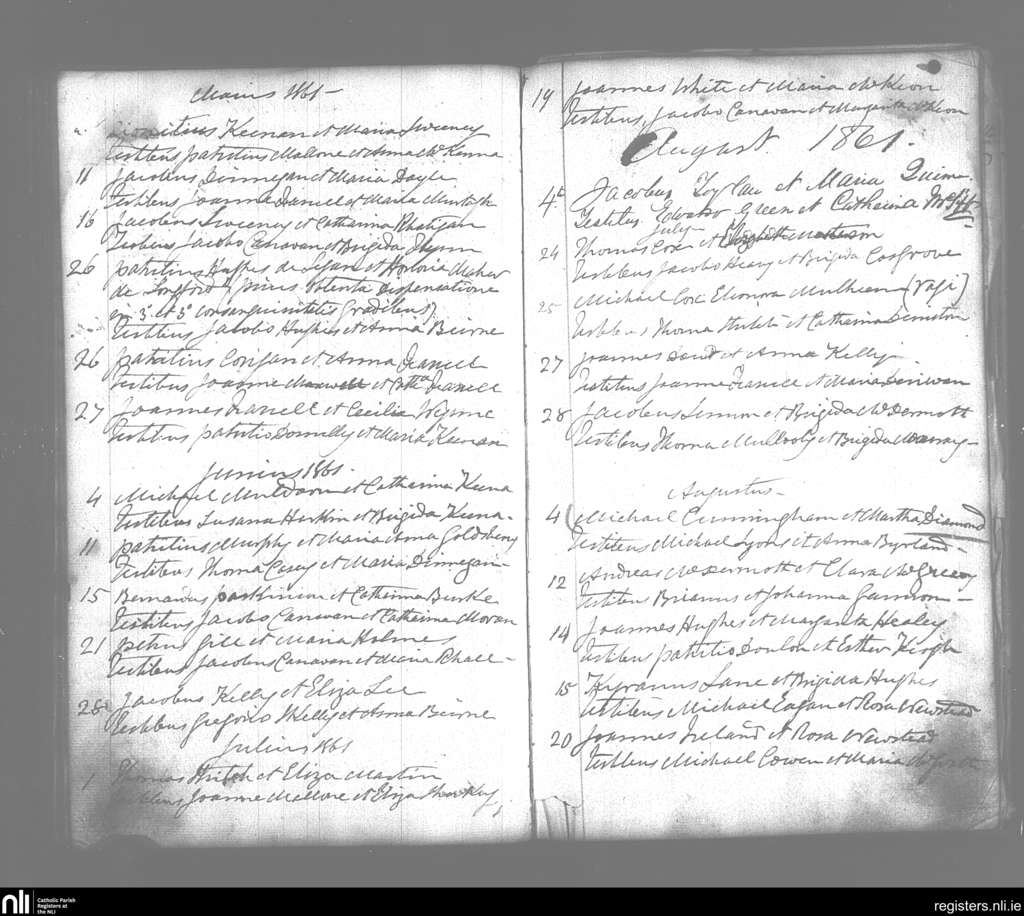 Maius 1861-
Keenan et Maria Sweeney
Testibus Patritius Mallone et Anna McKenna
11 Jacobus Dinnegan et Maria Doyle
Testibus Joanna Daniel et Maria Murtagh
16 Jacobus Sweeney et Catharina Rhatigan
Testibus Jacobo Canavan et Brigida Flynn
26 Patritius Hughes de et Honoria Maher
de Longford (prius obtenta dispensatione
in 3 et 3 consanguinitatis gradibus)
Testibus Jacobo Hughes et Anna Beirne
26 Patritius Corigan et Anna Farrell
Testibus Joanne Maxwell et Cath Farrell
27 Joannes Farrell et Cecilia Wynne
Testibus Patritio Donnelly et Maria Keenan
Junius 1861.
4 Michael Muldoon et Catharina Keena
Testibus Susana Harkin et Brigida Keena-
11 Patritius Murphy et Maria Anna Goldsberry
Testibus Thoma Casey et Maria Dinnegan-
15 Bernardus Parkinson et Catherina Burke
Testibus Jacobo Canavan et Catharina Moran
21 Petrus Gill et Maria Holmes
Testibus Jacobus Canavan et Maria
28 Jacobus Kelly et Eliza Lee
Testibus Gregorio Kelly et Anna Beirne
Julius 1861
1 Thomas et Eliza Martin
Testibus Joanne Mallone et Eliza
19 Joannes White et Maria McKeon
Testibus, Jacobo Canavan et Margarita McKeon
August. 1861.
4 Jacobus et Maria Quinn
Testibus Edvardo Green et Catherina
July
24 Thomas Cox et Elizabeth
Testibus Jacobo Heavy et Brigida Cosgrove
25 Michael Cox Elionora Mulhern (vagi)
Testibus Thoma et Catharina Deniston
27 Joannes et Anna Kelly-
Testibus Joanne Farrell et Maria
28 Jacobus Lennon et Brigida McDermott
Testibus Thoma Mulvooly et Brigida
Augustus-
4 (Michael Cunningham et Martha Diamond
Testibus Michael Lyons et Anna Byrland-
12 Andreas McDermott et Clara McGreevy
Testibus Briannus et Johanna Gannon-
14 Joannes Hughes et Margarita Healey
Testibus Patritio Donlon et Esther Keogh
15 Kyrannus Lane et Brigida Hughes
Testibus Michael Eagan et Rosa Newstead
20 Joannes Ireland et Rosa Newstead
Testibus Michael Cowen et Maria
nli
Catholic Parish
Registers at
the NLI
registers.nli.ie